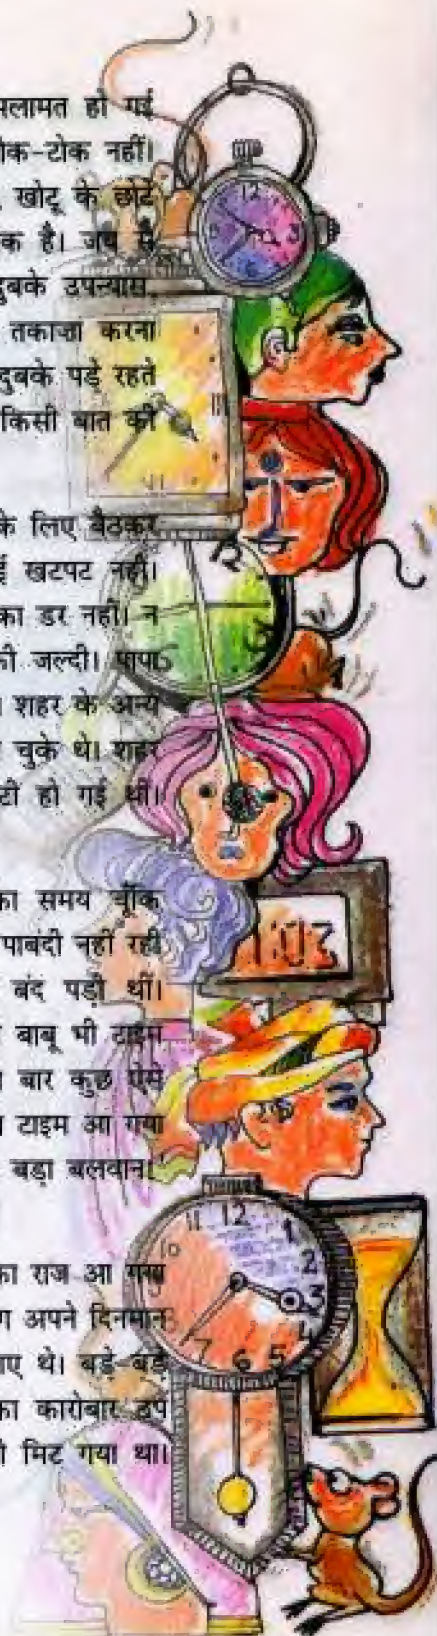 मलामत हो गई
ोक-टोक नहीं।
खोटू के छोटे
क है। जब से
दुबके उपन्यास,
तकाजा करना
दुबके पड़े रहते
किसी बात की
के लिए बैठकर
ई खटपट नहीं।
का डर नहीं। न
की जल्दी। पापा
। शहर के अन्य
चुके थे। शहर
टी हो गई थी।
का समय चूँकि
पाबंदी नहीं रही
बंद पड़ी थीं।
बाबू भी टाइम
बार कुछ ऐसे
टाइम आ गया
बड़ा बलवान।'
का राज आ गया
ग अपने दिनमान
ाए थे। बड़े-बड़े
का कारोबार ठप
ो मिट गया था।
12
3
12
1:02
11 12 1
10 2
3
4
7 6 5